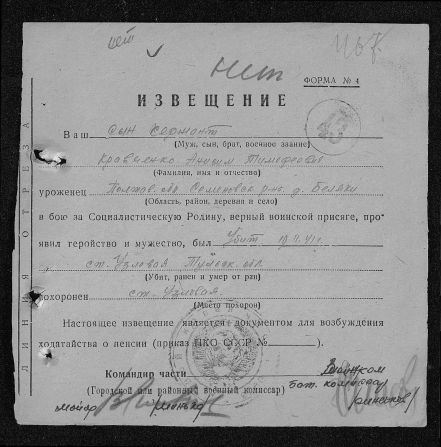 нет
нет
ФОРМА № 4
ИЗВЕЩЕНИЕ
Ваш сын сержант
(Муж, сын, брат, военное звание)
Анисим Тимофеевич
(Фамилия, имя и отчество)
уроженец Полтав. обл. Семеновск. р-на д. Беляки
(Область, район, деревня и село)
в бою за Социалистическую Родину, верный воинской присяге, про-
явил геройство и мужество, был Убит
ст. Узловая Тульск. обл.
(Убит, ранен и умер от ран)
похоронен ст. Узловая.
(Место похорон)
Настоящее извещение является документом для возбуждения
ходатайства о пенсии (приказ НКО СССР № ).
Командир части
(Городской или районный военный комиссар)
бат. комиссар
майор
ЛИНИЯ ОТРЕЗА